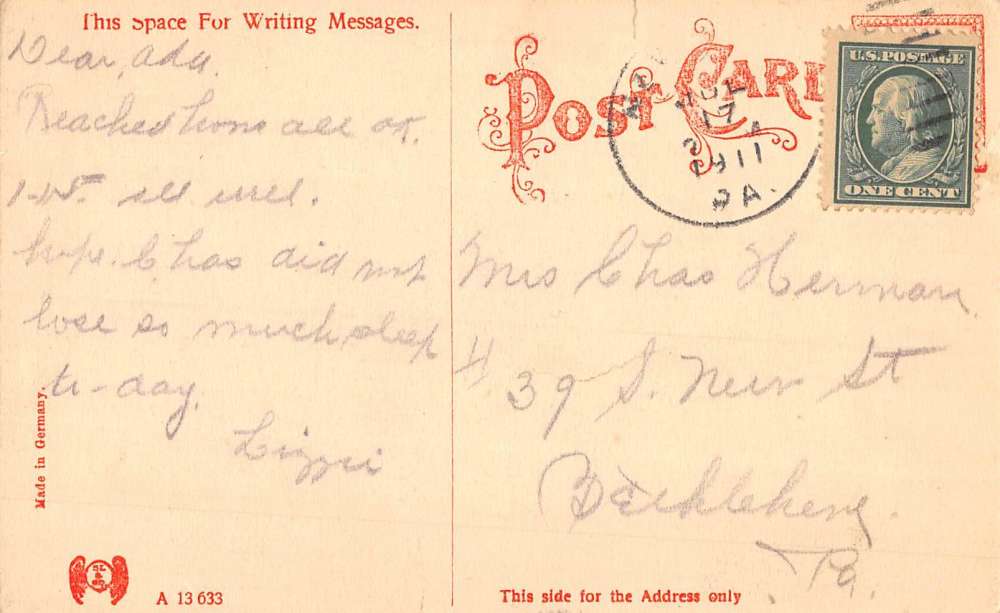 This Space For Writing Messages.
Dear, Ada.
Reached home all OK.
all well.
hope. Chas did not
lose so much sleep
to-day.
Lizzie
Made in Germany.
A 13 633
POST CARD
JUL
17
1911
PA.
U.S. POSTAGE
ONE CENT
Mrs Chas Herman
# 39 S. New St
Bethlehem.
Pa.
This side for the Address only